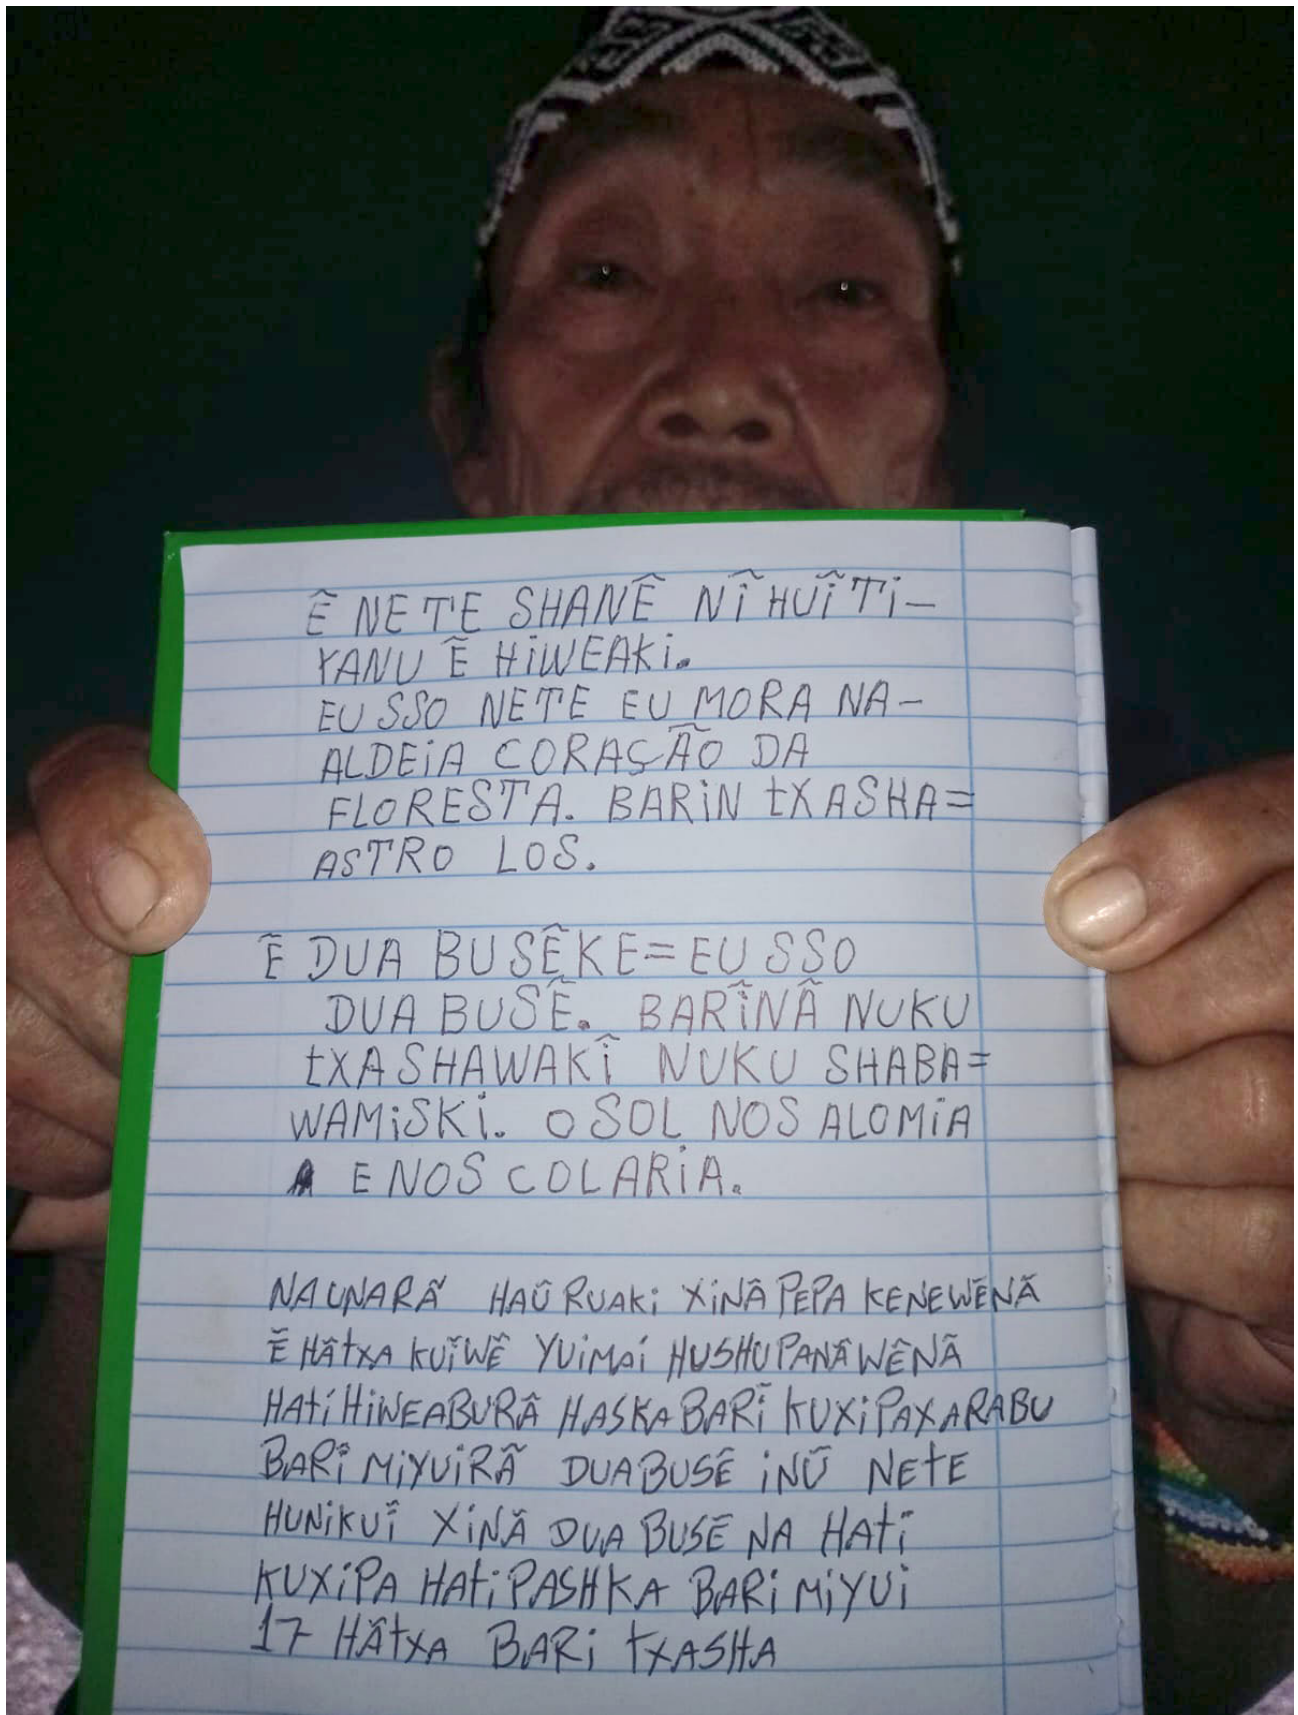 Ẽ NETE SHANẼ NĨ HUĨ TI-
YANU Ẽ HIWEAKI.
EU SSO NETE EU MORA NA-
ALDEIA CORAÇÃO DA
FLORESTA. BARIN TXASHA=
ASTRO LOS.
Ẽ DUA BUSẼKE=EU SSO
DUA BUSẼ. BARĨNÃ NUKU
TXASHAWAKĨ NUKU SHABA=
WAMISKI. O SOL NOS ALOMIA
E NOS COLARIA.
HAŨ RUAKI XINÃ PEPA KENEWẼNÃ
Ẽ HÃTXA KUĨWẼ YUIMAI HUSHUPANÃWẼNÃ
HATI HIWEABURÃ HASKA BARĨ KUXIPAXARABU
BARI MIYUIRÃ DUABUSẼ INŨ NETE
HUNIKUĨ XINÃ DUA BUSẼ NA HATI
KUXIPA HATI PASHKA BARI MIYUI
17 HÃTXA BARI TXASHA